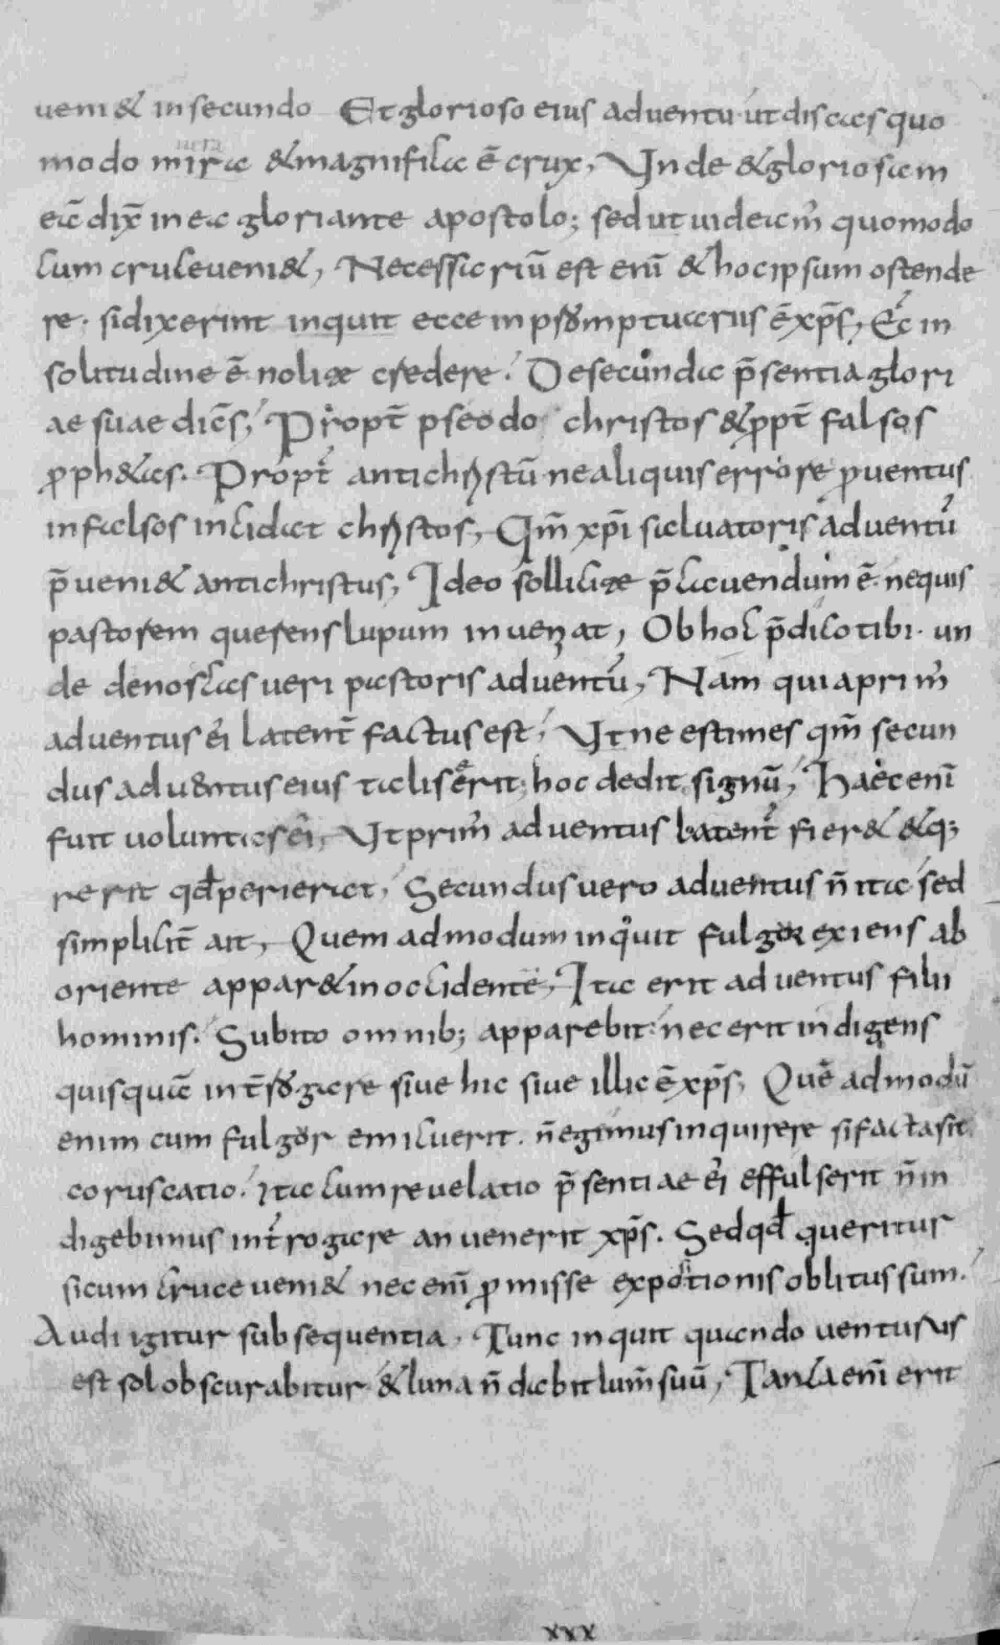 ueni& in secundo Et glorioso eius aduentu· ut discas quo
modo mira &magnifica ē crux, Vnde &gloriosam
eā dix̄ in ea gloriante apostolo; sed ut uideam̄ quomodo
cum cruce ueni&, Necessariū est enī &hoc ipsum ostende
re· si dixerint inquit ecce in promptuarus ē xp̄s, Ec in
solitudine ē nolite credere. De secunda p̄sentia glori
ae suae dicēs, Propt̄ pseodo christos &ꝓpt̄ falsos
ꝓph&as. Propt̄ antichrystū· ne aliquis errore ꝓuentus
in falsos incidat chrystos, Qm̄ xp̄i saluatoris aduentū
p̄ueni& antichristus, Ideo sollicite p̄cauendum ē· nequis
pastorem querens lupum inueniat, Ob hoc p̄dico tibi· un
de denoscas ueri pastoris aduentū, Nam quia prim̄
aduentus ei latent̄ factus est, Vt ne estimes qm̄ secun
dus aduentus eius talis erit, hoc dedit signū, Haec enī
fuit uoluntas ei, Vt prim̄ aduentus latent̄ fier& &q;
rerit qd̄ perierat, Secundus uero aduentus n̄ ita sed
simplicit̄ ait, Quem admodum inquit fulgor exiens ab
oriente appar& in occidente, Ita erit aduentus filii
hominis. Subito omnib; apparebit· nec erit indigens
quisquā int̄rogare siue hic siue illic ē xp̄s, Quē admodū
enim cum fulgor emicuerit· n̄ egimus inquirere si facta sit
coruscatio. ita cum reuelatio p̄sentiae ei effulserit n̄ in
digebimus int̄rogare an uenerit xp̄s. Sed qd̄ queritur
si cum cruce ueni& nec enī ꝓmisse expotionis oblitus sum.
Audi igitur subsequentia. Tunc inquit quando uenturus
est sol obscurabitur &luna n̄ dabit lum̄ suū, Tanta enī erit
xxx